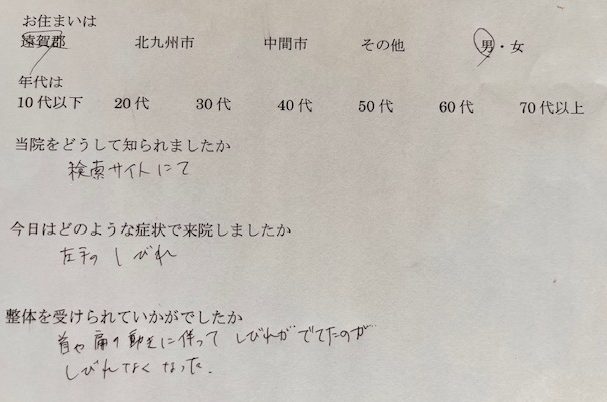 お住まいは
遠賀郡 北九州市 中間市 その他 男・女
年代は
10代以下 20代 30代 40代 50代 60代 70代以上
当院をどうして知られましたか
検索サイトにて
今日はどのような症状で来院しましたか
左手のしびれ
整体を受けられていかがでしたか
首や肩の動きに伴ってしびれがでてたのが
しびれなくなった.